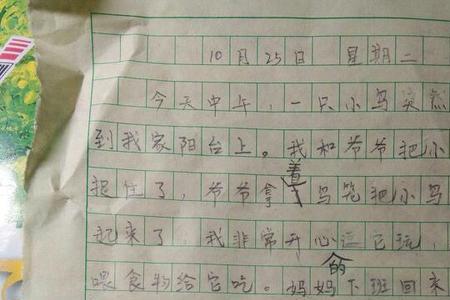 10月25日 星期二
今天中午，一只小鸟突然
到我家阳台上。我和爷爷把小
捉住了，爷爷拿着鸟笼把小鸟
起来了 我非常开心的逗它玩，
喂食物给它吃。妈妈下班回来